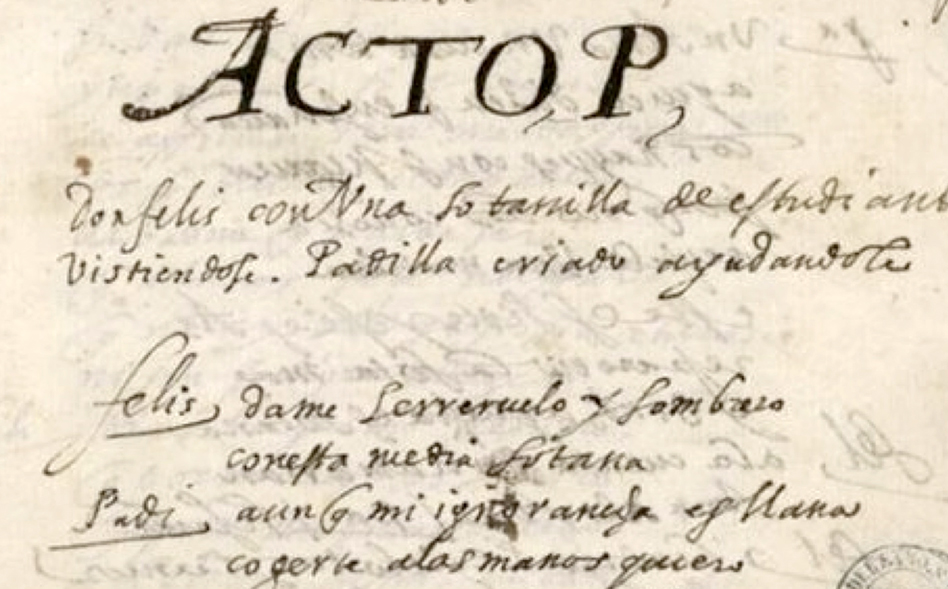 ACTO, P,
Don felis con Vna sotanilla de estudiant
vistiendose. Padilla criado ayudandole
felis, dame ferreruelo y sombrero
con esta media sotana
Padi, aunq mi ignorancia es llana
cogerte a las manos quiero